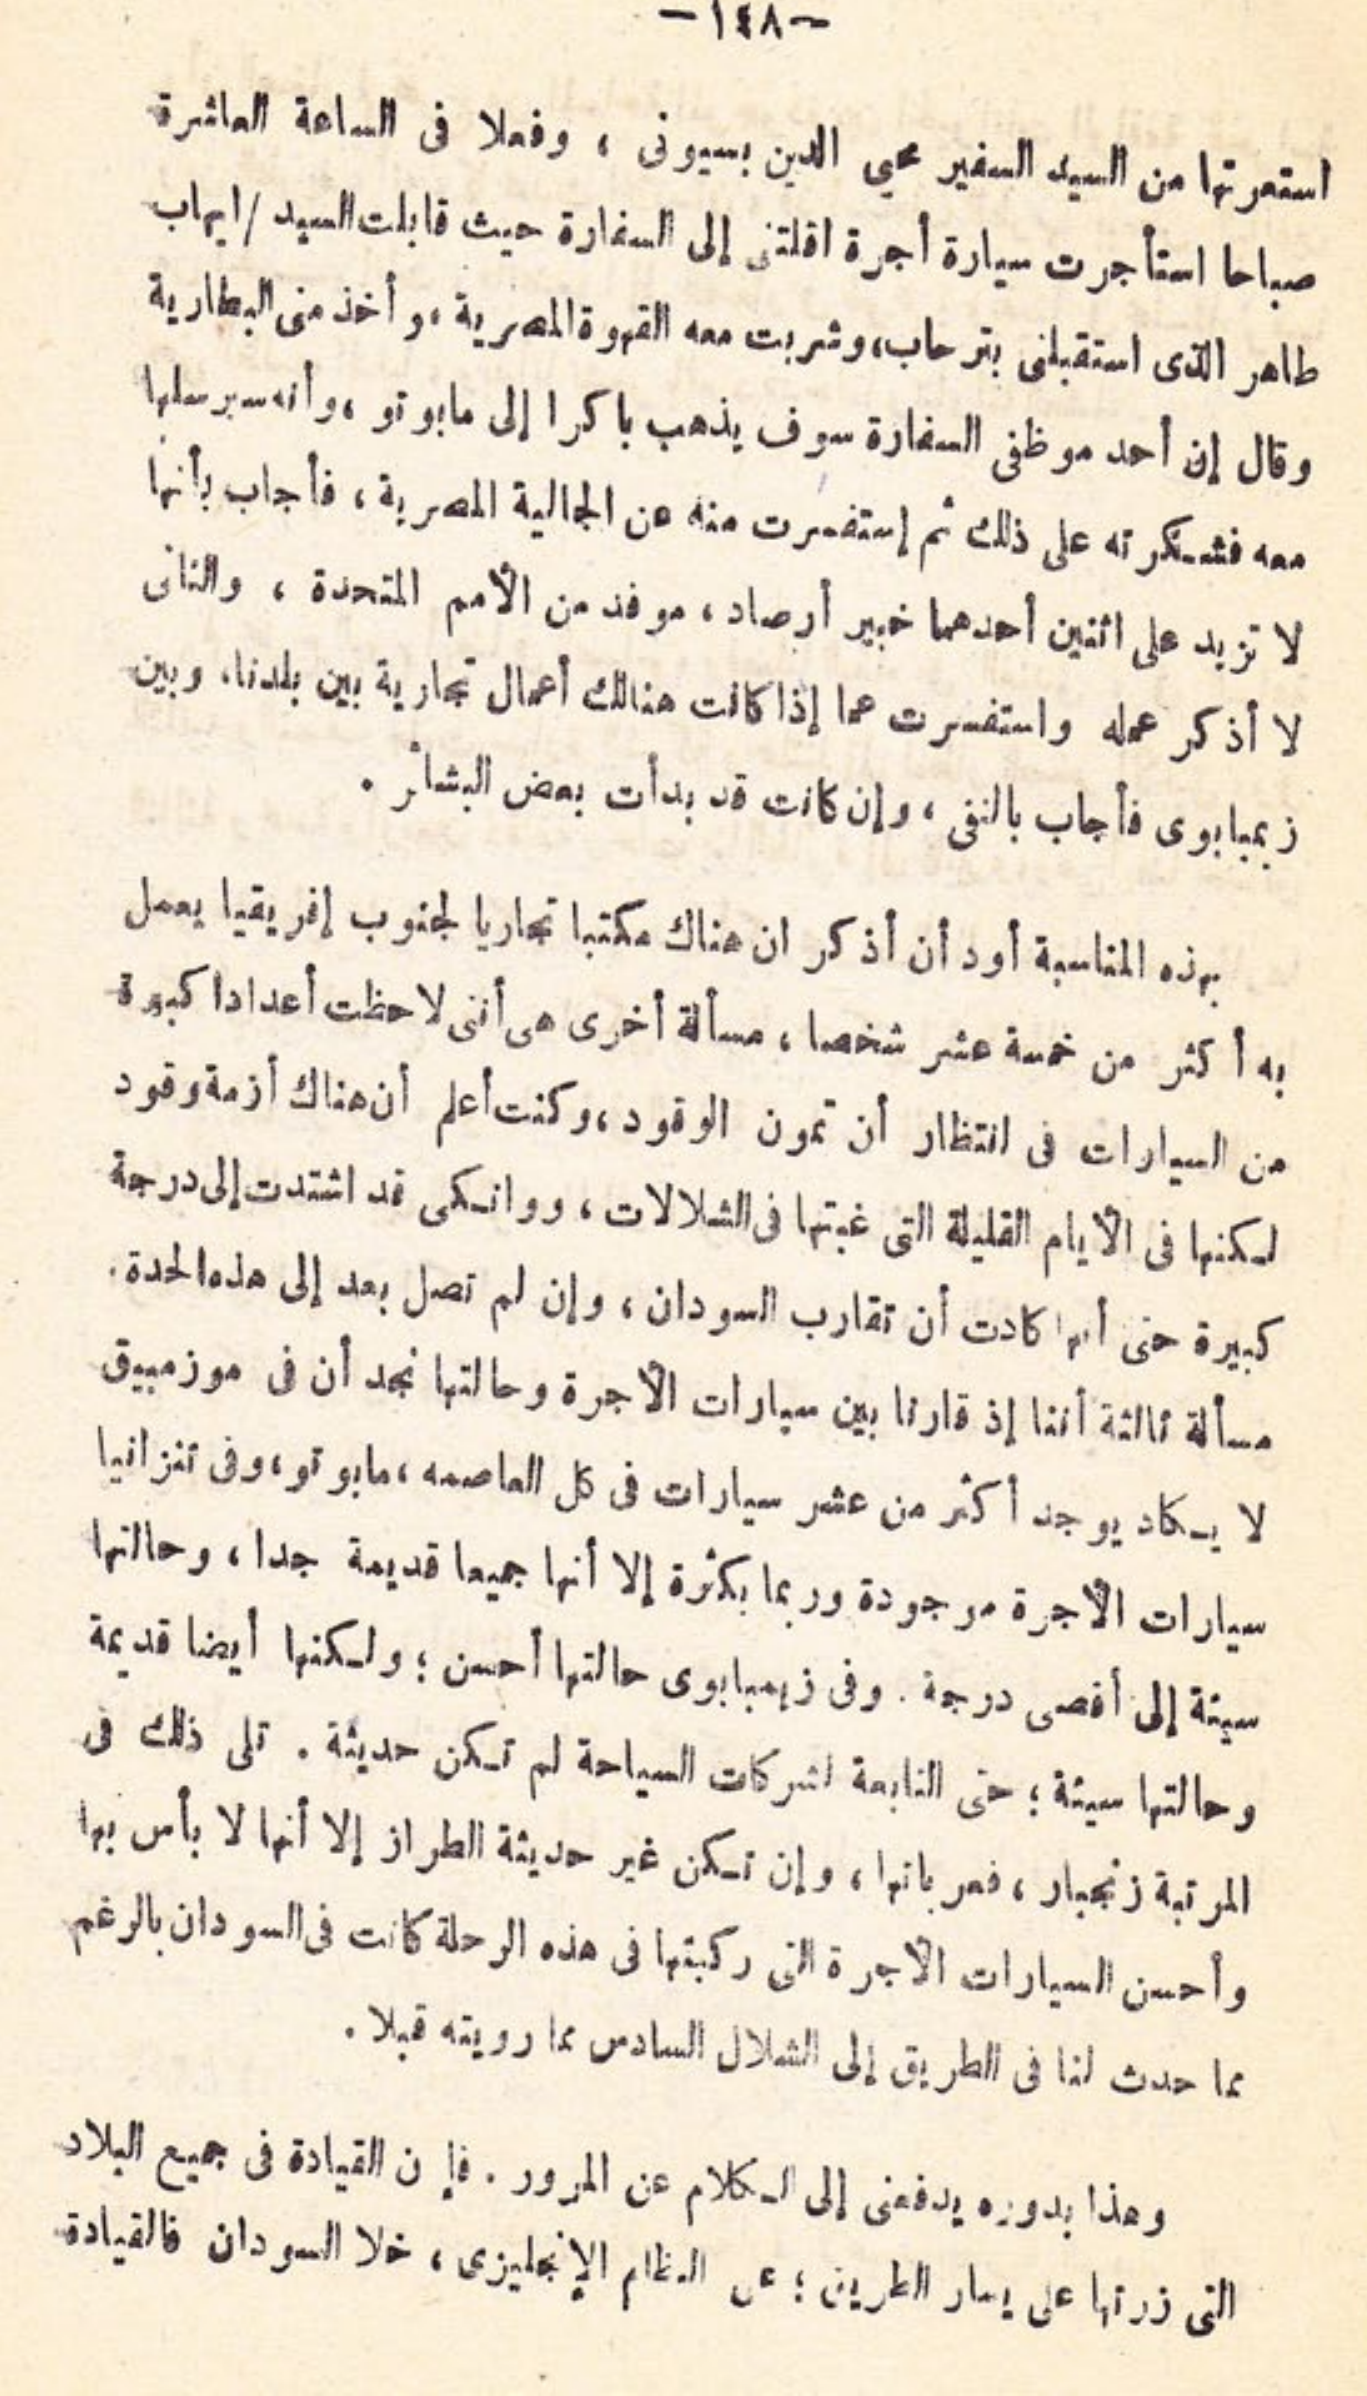 — ١٤٨ —
استعرتها من السيد السفير محيي الدين بسيونى ، وفعلا فى الساعة العاشرة
صباحا استأجرت سيارة أجرة اقلتنى إلى السفارة حيث قابلت السيد / ايهاب
طاهر الذى استقبلنى بترحاب، وشربت معه القهوة المصرية ، وأخذ منى البطارية
وقال إن أحد موظفى السفارة سوف يذهب باكرا إلى مابوتو ، وأنه سيرسلها
معه فشكرته على ذلك ثم إستفسرت منه عن الجالية المصرية ، فأجاب بأنها
لا تزيد على اثنين أحدهما خبير أرصاد ، موفد من الأمم المتحدة ، والثانى
لا أذكر عمله واستفسرت عما إذا كانت هنالك أعمال تجارية بين بلدنا، وبين
زيمبابوى فأجاب بالنفى ، وإن كانت قد بدأت بعض البشائر .
بهذه المناسبة أود أن أذكر ان هناك مكتبا تجاريا لجنوب إفريقيا يعمل
به أكثر من خمسة عشر شخصا ، مسألة أخرى هى أننى لاحظت أعدادا كبيرة
من السيارات فى انتظار أن تمون الوقود ، وكنت أعلم أن هناك أزمة وقود
لكنها فى الأيام القليلة التى غبتها فى الشلالات ، ووانكى قد اشتدت إلى درجة
كبيرة حتى أنها كادت أن تقارب السودان ، وإن لم تصل بعد إلى هذه الحدة .
مسألة ثالثة أننا إذ قارنا بين سيارات الأجرة وحالتها نجد أن فى موزمبيق
لا يكاد يوجد أكثر من عشر سيارات فى كل العاصمه ، مابوتو ، وفى تنزانيا
سيارات الأجرة موجودة وربما بكثرة إلا أنها جميعا قديمة جدا ، وحالتها
سيئة إلى أقصى درجة . وفى زيمبابوى حالتها أحسن ؛ ولكنها أيضا قديمة
وحالتها سيئة ؛ حتى التابعة لشركات السياحة لم تكن حديثة . تلى ذلك فى
المرتبة زنجبار ، فعرباتها ، وإن تكن غير حديثة الطراز إلا أنها لا بأس بها
وأحسن السيارات الأجرة التى ركبتها فى هذه الرحلة كانت فى السودان بالرغم
مما حدث لنا فى الطريق إلى الشلال السادس مما رويته قبلا .
وهذا بدوره يدفعنى إلى الكلام عن المرور . فإن القيادة فى جميع البلاد
التى زرتها على يسار الطريق ؛ عن النظام الإنجليزى ، خلا السودان فالقيادة